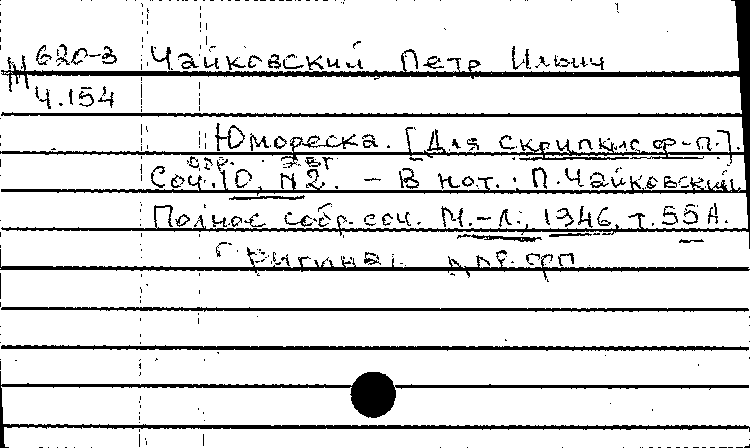 М 620-3 Чайковский, Петр Ильич
Ч.154
Юмореска. [Для скрипки с ф-п.].
обр. авт
Соч. 10, N 2. - В нот.: П. Чайковский.
Полное собр. соч. М.-Л., 1946, т. 55 А.
Оригинал для фп